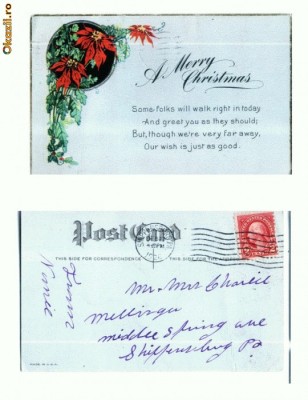 Okazii.ro
A Merry
Christmas
Some folks will walk right in today
And great you as they should;
But, though we're very far away,
Our wish is just as good.
Post Card
THIS SIDE FOR CORRESPONDENCE
From
Mr Mrs Charlie
Mellinger
middle Spring ave
Shippensburg Pa